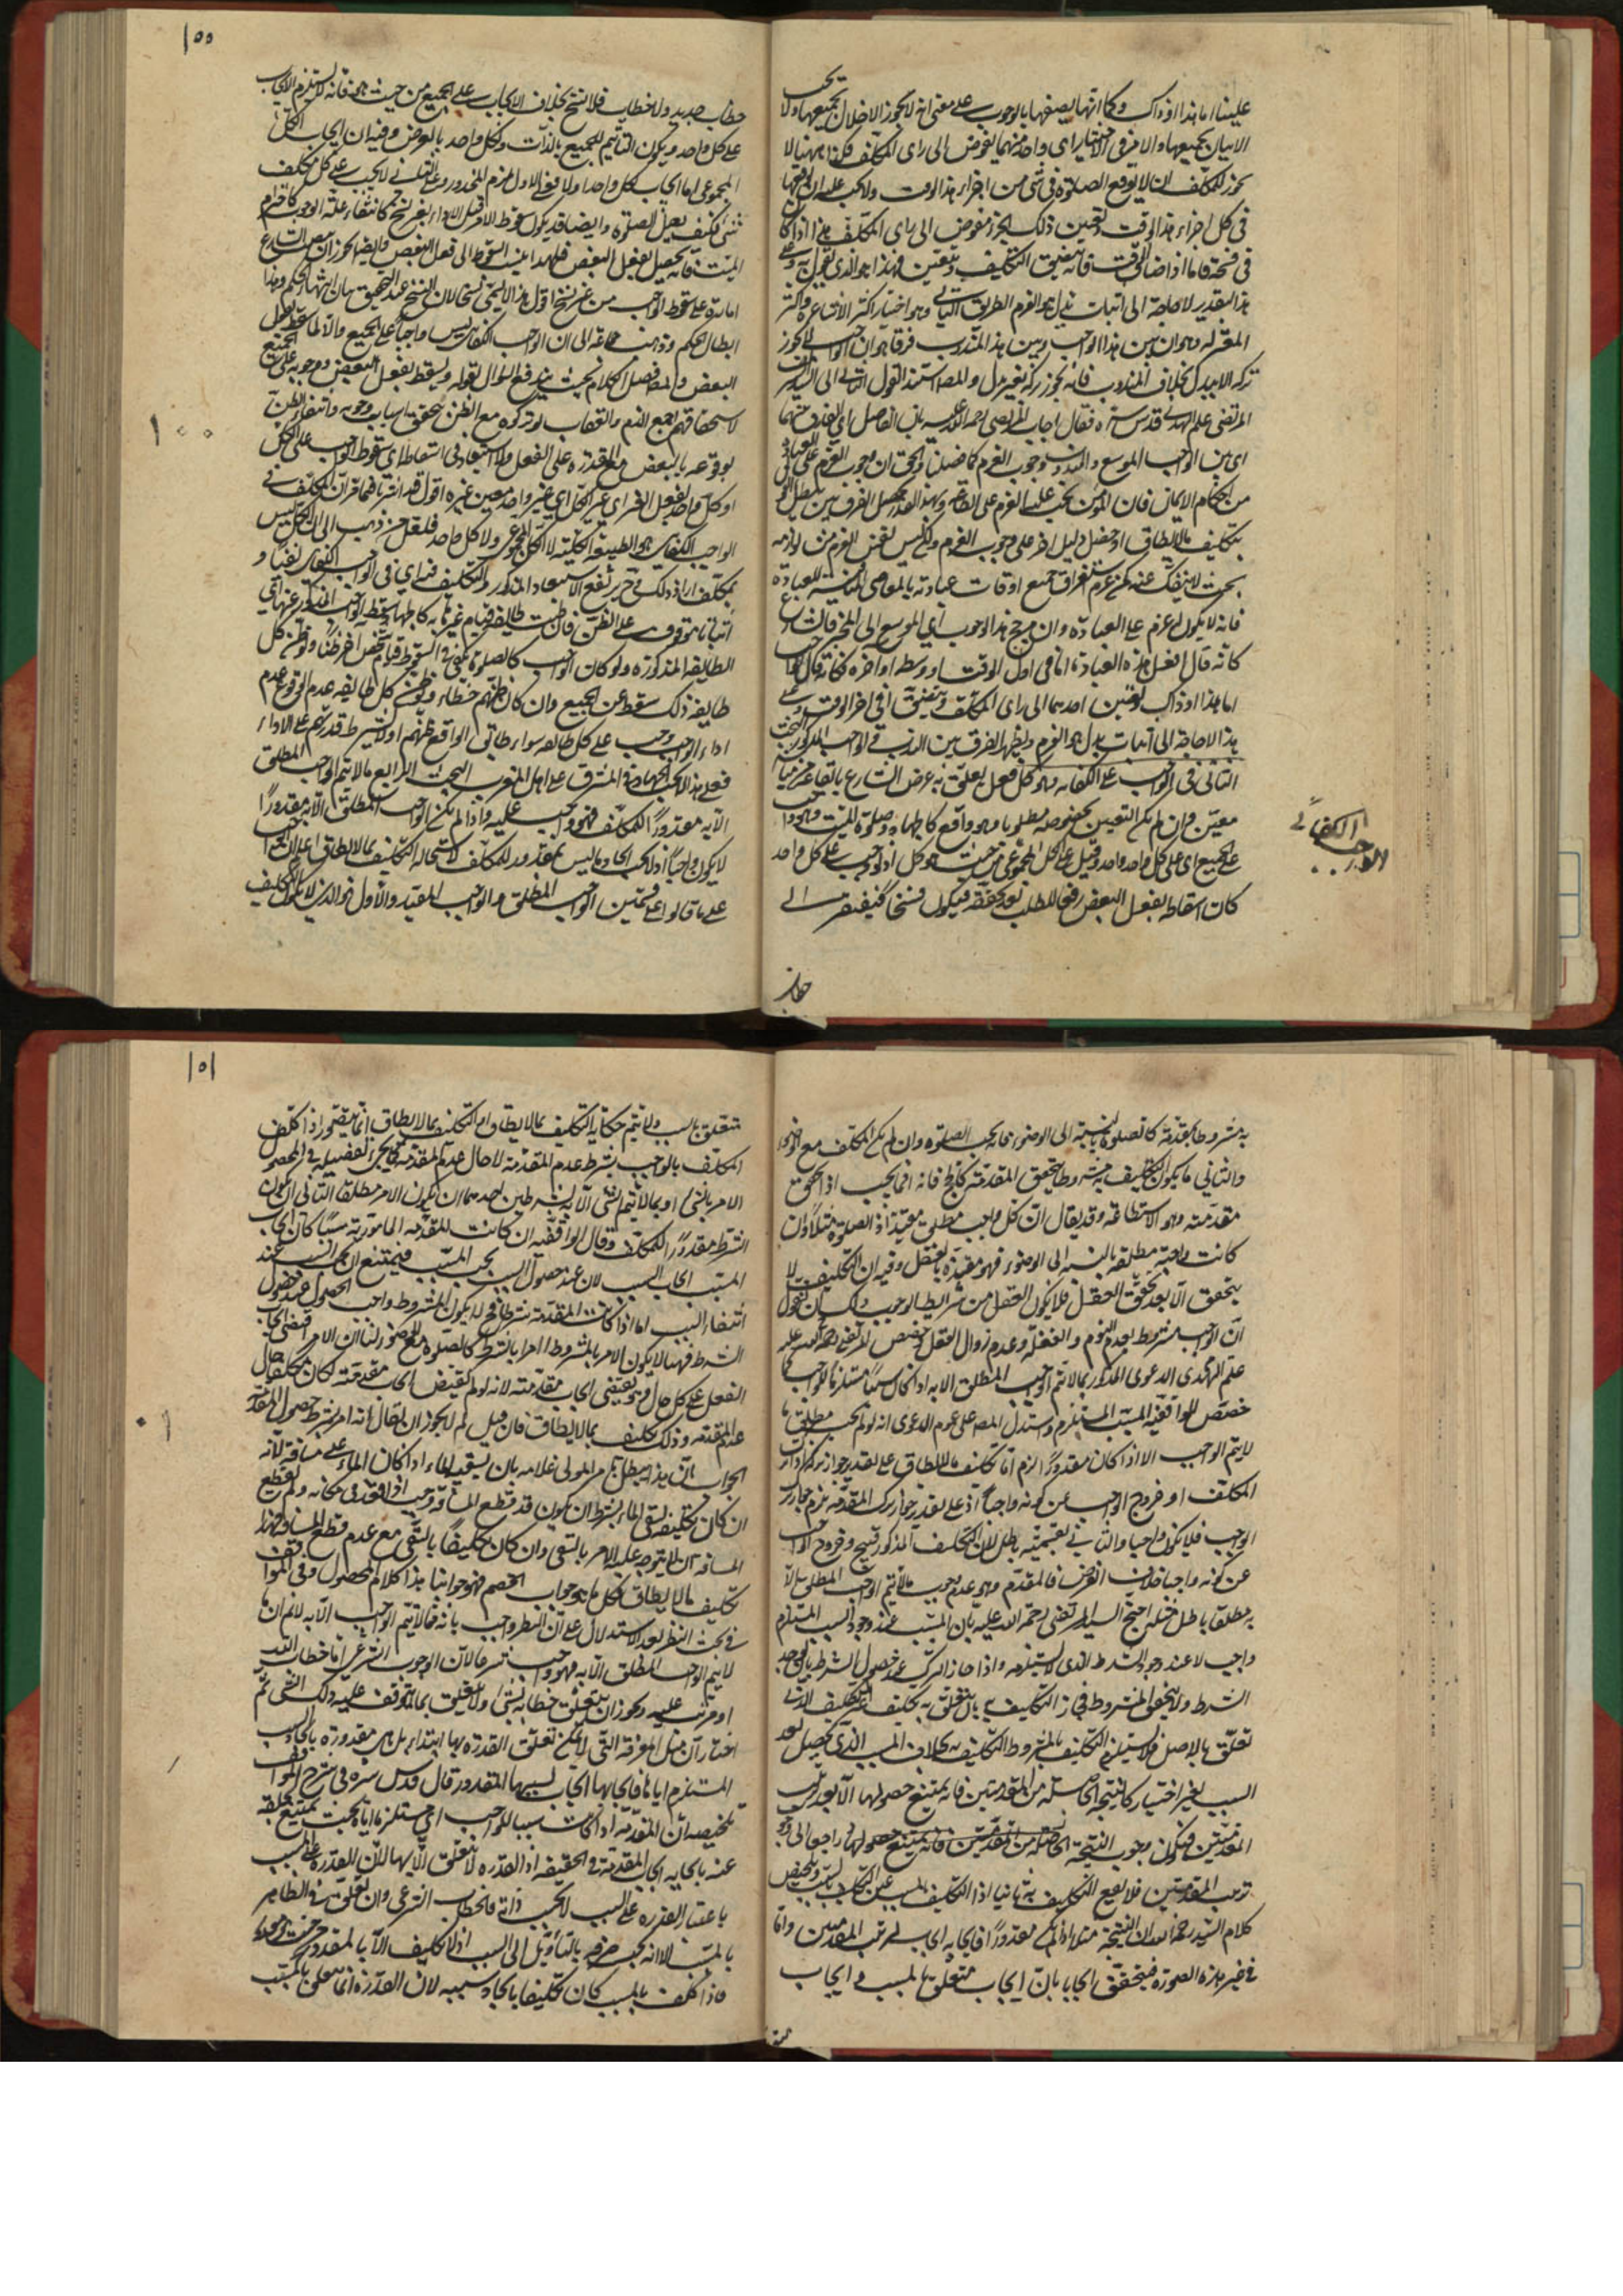 علينا اما هذا او ذاك وكما انها يصفها بالوجوب على معنى انه لا يجوز الاخلال بجميعها ولا يجب
الاتيان بجميعها والامر فى اختيار اى واحد منهما يفوض الى راى المكلف فكذا ههنا لا
يجوز للمكلف ان لا يوقع الصلوة فى شئ من اجزاء هذا الوقت ولا يجب عليه ان يوقعها
فى كل اجزاء هذا الوقت وتعيين ذلك الجزء مفوض الى راى المكلف هذا اذا كان
فى فسحة فاما اذا ضاق الوقت فانه يتضيق التكليف ويتعين وهذا هو الذى نقول به وعلى
هذا التقدير لا حاجة الى اثبات بدل هو العزم الطريق الثانى وهو اختيار اكثر الاشاعرة واكثر
المعتزلة وهو ان بين هذا الواجب وبين هذا المندوب فرقا هو ان الواجب لا يجوز
تركه الا ببدل بخلاف المندوب فانه يجوز تركه بغير بدل والمص اسند القول الثانى الى السيد
المرتضى علم الهدى قدس سره فقال اجاب المرتضى رحمه الله عليه بان الفاصل اى الفرق بينهما
اى بين الواجب الموسع والمندوب وجوب العزم كما فصلنا والحق ان وجوب العزم على
من احكام الايمان فان المؤمن يجب عليه العزم على الطاعة
بتكليف ما لا يطاق او حصل دليل اخر على وجوب العزم ولكن ليس
بحيث لا ينفك عنه كمن عزم استغراق جميع اوقات عبادته بالمعاصى المنافية للعبادة
فانه لا يكون له عزم على العبادة وان مرجع هذا الوجوب اى الموسع الى المخير فالشارع
كانه قال افعل هذه العبادة اما فى اول الوقت او وسطه او اخره فكانه قال
اما هذا او ذاك وتعيين احدهما الى راى المكلف ويتضيق فى اخر الوقت وعلى
هذا لا حاجة الى اثبات بدل هو العزم وليظهر الفرق بين الندب والواجب المذكور البحث
الثانى فى الواجب على الكفاية وهو كل فعل يتعلق به غرض الشارع بايقاعه
معين وان لم يكن التعيين بخصوصه مطلوبا وهو واقع كالجهاد وصلوة الميت وهو واجب
على الجميع اى على كل واحد واحد وقيل على الكل المجموعى من حيث هو كل اذ لو وجب على كل واحد
كان اسقاطه بفعل البعض رفعا للطلب بعد تحققه فيكون نسخا فيفتقر الى
الواجب الكفائى
خطاب
١٥٥
خطاب جديد ولا خطاب فلا نسخ بخلاف الايجاب على الجميع من حيث هو فانه لا يستلزم الايجاب
على كل واحد ويكون التاثيم للجميع بالذات ولكل واحد بالعرض وفيه ان ايجاب الكل
المجموعى اما ايجاب لكل واحد او لا فعلى الاول عزم المحذور وعلى الثانى لا يجب على كل مكلف
شئ فكيف يفعل الصلوة وايضا قد يكون سقوط الامر قبل الاداء بغير نسخ كانتفاء علة الوجوب كاحترام
الميت فانه يحصل بفعل البعض فلهذا ينسب السقوط الى فعل البعض وايضا يجوز ان ينصب الشارع
امارة على سقوط الواجب من غير نسخ اقول هذا لا يسمى نسخا لان النسخ عند التحقيق بيان انتهاء الحكم وهذا
ابطال الحكم وذهب جماعة الى ان الواجب الكفائى ليس واجبا على الجميع والا لما سقط بفعل
البعض والمص فصل الكلام بحيث يندفع السؤال بقوله ويسقط بفعل البعض ووجوبه على الجميع
لاستحقاقهم اجمع الذم والعقاب لو تركوه مع الظن بتحقق اسباب وجوبه وانتفاء الظن
بوقوعه بالبعض مع القدرة على الفعل ولا استبعاد فى اسقاط اى سقوط الواجب على الكل
او كل واحد بفعل الغير اى غير الكل اى غير واحد معين غيره اقول قد اشرنا فيما مر ان المكلف فى
الواجب الكفائى هو الطبيعة الكلية لا الكل المجموعى ولا كل واحد فلعل من ذهب الى ان الكل ليس
بمكلف اراد ذلك فح يرتفع الاستبعاد المذكور والتكليف فيه اى فى الواجب الكفائى نفيا و
اثباتا موقوف على الظن فان ظنت طائفة قيام غيرها به كالجهاد سقط الواجب المذكور عنها اى
الطائفة المذكورة ولو كان الواجب كالصلوة يكفى فى السقوط قيام شخص اخر ظنا ولو ظن كل
طائفة ذلك سقط عن الجميع وان كان ظنهم خطاء ولو ظن كل طائفة عدم الوقوع عدم
اداء الواجب وجب على كل طائفة سواء طابق الواقع ظنهم او لا بشرط قدرتهم على الاداء
فعلى هذا لا يجب الجهاد فى المشرق على اهل المغرب البحث الرابع ما لا يتم الواجب المطلق
الا به مقدورا للمكلف فهو واجب عليه واذا لم يكن الواجب المطلق الا به مقدورا
لا يكون واجبا اذ لا يجب ايجاد ما ليس بمقدور للمكلف لاستحالة التكليف بما لا يطاق اعلم ان الواجب
على ما قالوا على قسمين الواجب المطلق والواجب المقيد والاول هو الذى لا يكون التكليف
١٠٠
به مشروطا بمقدمة كالصلوة بالنسبة الى الوضوء فانه يجب الصلوة وان لم يكن المكلف مع الوضوء
والثانى ما يكون التكليف به مشروطا بتحقق المقدمة كالحج فانه انما يجب اذا تحقق
مقدمته وهو الاستطاعة وقد يقال ان كل واجب مطلق مقيد اذ الصلوة مثلا وان
كانت واجبة مطلقة بالنسبة الى الوضوء فهو مقيدة بالعقل وفيه ان التكليف لا
يتحقق الا بعد تحقق العقل فلا يكون العقل من شرايط الوجوب ولك ان تقول
ان الواجب مشروط بعدم النوم والغفلة وعدم زوال العقل وخصص المرتضى رحمه الله عليه
علم الهدى الدعوى المذكور بما لا يتم الواجب المطلق الا به اذا كان سببا مستلزما للواجب كما
خصص الواقفية السبب المستلزم واستدل المص على عموم الدعوى انه لو لم يجب مطلق ما
لا يتم الواجب الا به اذا كان مقدورا لزم اما تكليف ما لا يطاق على تقدير جواز تركه
المكلف او خروج الواجب عن كونه واجبا اذ على تقدير جواز ترك المقدمة يلزم جواز ترك
الواجب فلا يكون واجبا والتالى بقسميه باطل لان التكليف المذكور قبيح وخروج الواجب
عن كونه واجبا خلاف الفرض فالمقدم وهو عدم وجوب ما لا يتم الواجب المطلق الا
به مطلقا باطل مثله احتج السيد المرتضى رحمة الله عليه بان المسبب عند وجود السبب المستلزم
واجب لا عند وجود الشرط الذى لا يستلزمه واذا جاز الترك عند حصول الشرط
الشرط ولا يتحقق المشروط فجاز التكليف به بان يتعلق به تكليف غير التكليف الذى
تعلق بالاصل فلا يستلزم التكليف بالمشروط التكليف به بخلاف المسبب الذى يحصل بعد
السبب بغير اختيار كالنتيجة الحاصلة من المقدمتين فانه يمتنع حصولها الا بعد ترتيب
المقدمتين فيكون وجوب النتيجة الحاصلة من المقدمتين فانه يمتنع حصولها راجعا الى وجوب
ترتيب المقدمتين فلا يقع التكليف به ثانيا اذ التكليف بالمسبب عين التكليف بالسبب وملخص
كلام السيد رحمه الله ان النتيجة مثلا اذا لم يكن مقدورا فايجابه ايجاب لترتيب المقدمتين واما
فى غير هذه الصورة فيتحقق ايجابان ايجاب متعلق بالمسبب وايجاب
١٥١
متعلق بالسبب ولا يتم حكاية التكليف بما لا يطاق اذ التكليف بما لا يطاق انما يتصور اذا كلف
المكلف بالواجب بشرط عدم المقدمة لا حال عدم المقدمة كما يجئ تفصيله
الامر بالشئ امر بما لا يتم الشئ الا به بشرطين احدهما ان يكون الامر مطلقا الثانى ان يكون
الشرط مقدورا للمكلف وقال الواقفية ان كانت المقدمة المامور به سببا كان ايجاب
المسبب ايجاب السبب لان عند حصول السبب يجب المسبب فيمتنع
انتفاء السبب اما اذا كانت المقدمة شرطا فح لا يكون المشروط واجب الحصول عند حصول
الشرط فههنا لا يكون الامر بالمشروط امرا بالشرط كالصلوة مع الوضوء لنا ان الامر اقتضى ايجاب
الفعل على كل حال فيقتضى ايجاب مقدمته لانه لو لم يقتض ايجاب مقدمته لكان مكلفا حال
عدم المقدمة وذلك تكليف بما لا يطاق فان قيل لم لا يجوز ان يقال انه امر بشرط حصول المقدمة
الجواب ان هذا يبطل بامر المولى غلامه بان يسقيه الماء اذا كان الماء على مسافة لانه
ان كان تكليفه بسقى الماء بشرط ان يكون قد قطع المسافة وجب اذا قعد فى مكانه ولم يقطع
المسافة ان لا يتوجه عليه الامر بالسقى وان كان تكليفا بالسقى مع عدم قطع المسافة فهذا
تكليف ما لا يطاق فكل ما هو جواب الخصم فهو جوابنا هذا كلام المحصول وفى المواقف
فى بحث النظر بعد الاستدلال على ان النظر واجب بانه ما لا يتم الواجب الا به لا نم ان ما
لا يتم الواجب المطلق الا به فهو واجب شرعا لان الوجوب الشرعى اما خطاب الله
او مرتب عليه ويجوز ان يتعلق خطابه بشئ ولا يتعلق بما يتوقف عليه ذلك الشئ ثم
اختار ان مثل المعرفة التى لا يمكن تعلق القدرة بها ابتداء بل هى مقدورة بايجاد السبب
المستلزم اياها فايجابها ايجاب لسببها المقدور قال قدس سره فى شرح المواقف
تلخيصه ان المقدمة اذا كانت سببا للواجب اى مستلزما اياه بحيث يمتنع تخلفه
عنه فايجابه ايجاب المقدمة فى الحقيقة اذ القدرة لا تتعلق الا بها لان القدرة على المسبب
باعتبار القدرة على السبب لا بحسب ذاته فالخطاب الشرعى وان تعلق فى الظاهر
بالمسبب الا انه يجب صرفه بالتاويل الى السبب اذ لا تكليف الا بالمقدور من حيث هو مقدور
فاذا كلف بالمسبب كان تكليفا بايجاد سببه لان القدرة انما تتعلق بالسبب
١٠١